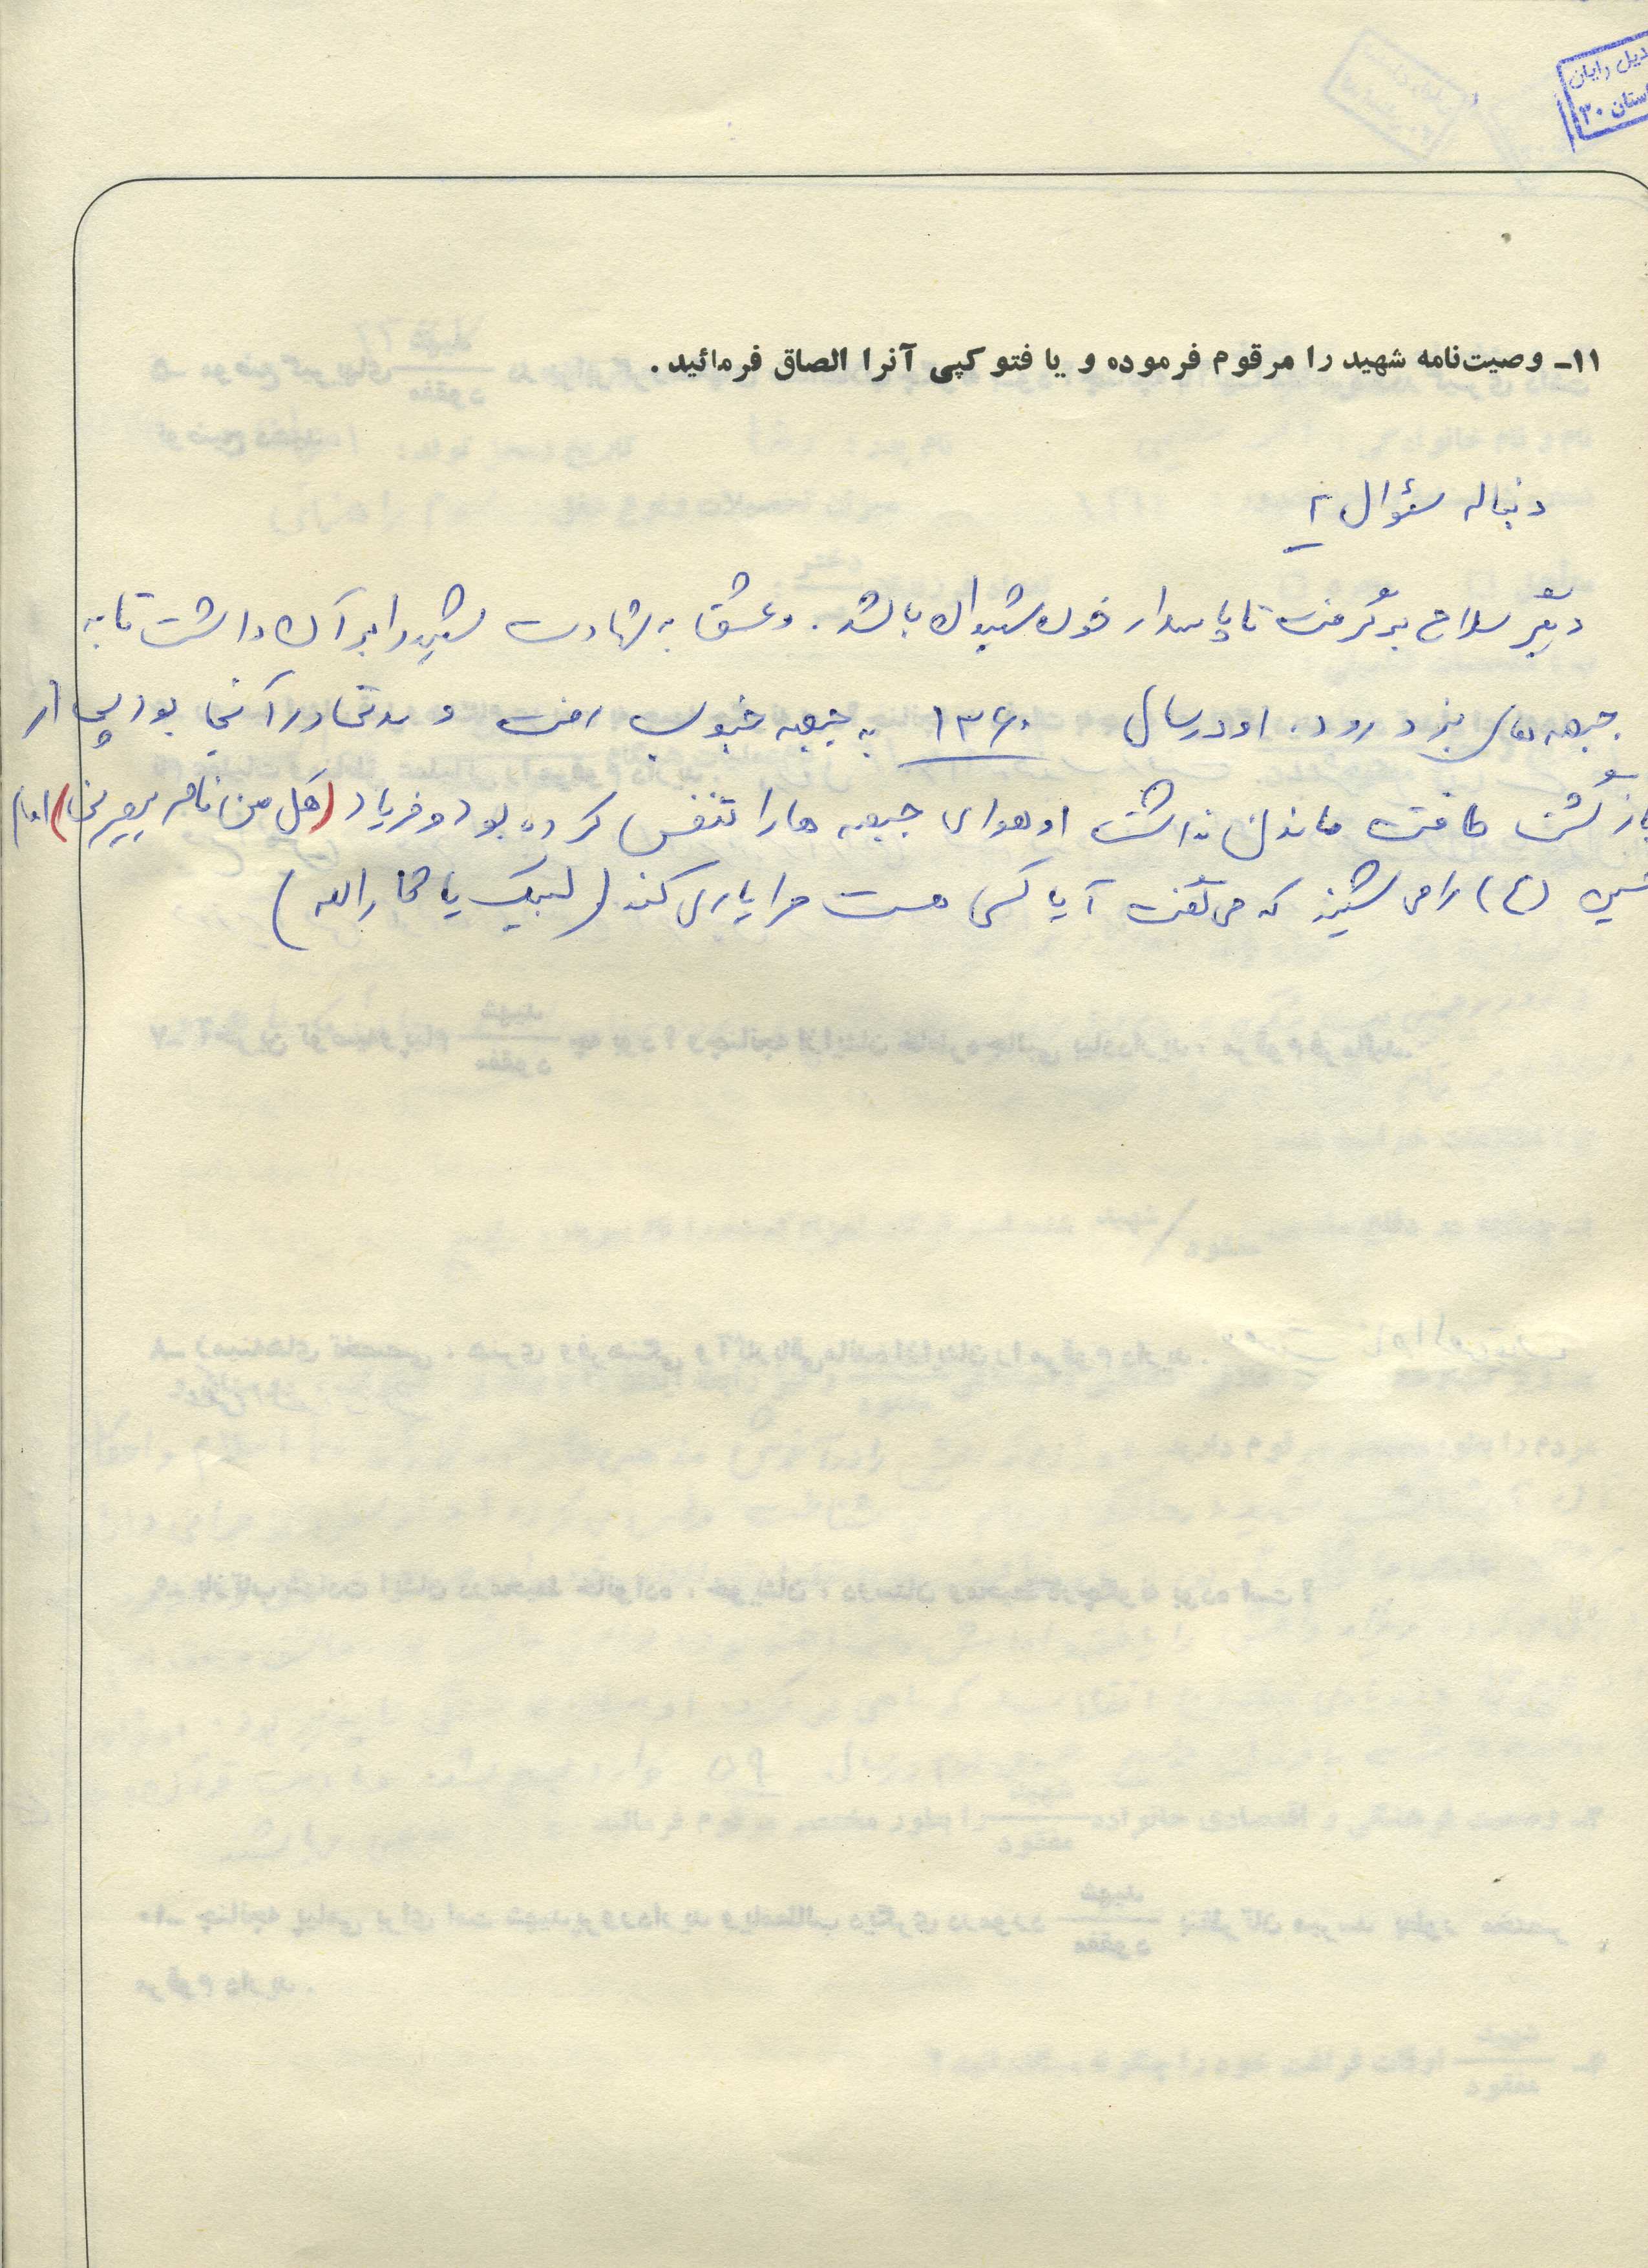 دیل رایان
ستان ۳۰
۱۱ـ وصیت‌نامه شهید را مرقوم فرموده و یا فتوکپی آنرا الصاق فرمائید.
دنباله سئوال ۲
دیگر سلاح برگرفت تا پاسدار خون شهیدان باشد. و عشق به شهادت شهید را بر آن داشت تا به
جبهه های نبرد رود. او در سال ۱۳۶۰ به جبهه جنوب رفت و مدتی در آنجا بود پس از
بازگشت طاقت ماندن نداشت او هوای جبهه ها را تنفس کرده بود و فریاد (هل من ناصر ینصرنی) امام
حسین (ع) را می شنید که می گفت آیا کسی هست مرا یاری کند (لبیک یا ثارالله)